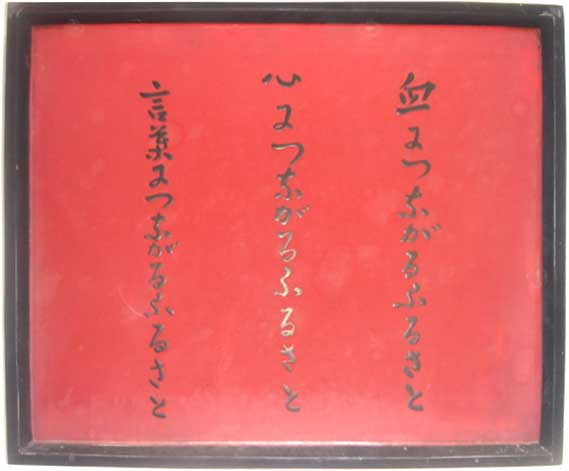 血につながるふるさと
心につながるふるさと
言葉につながるふるさと